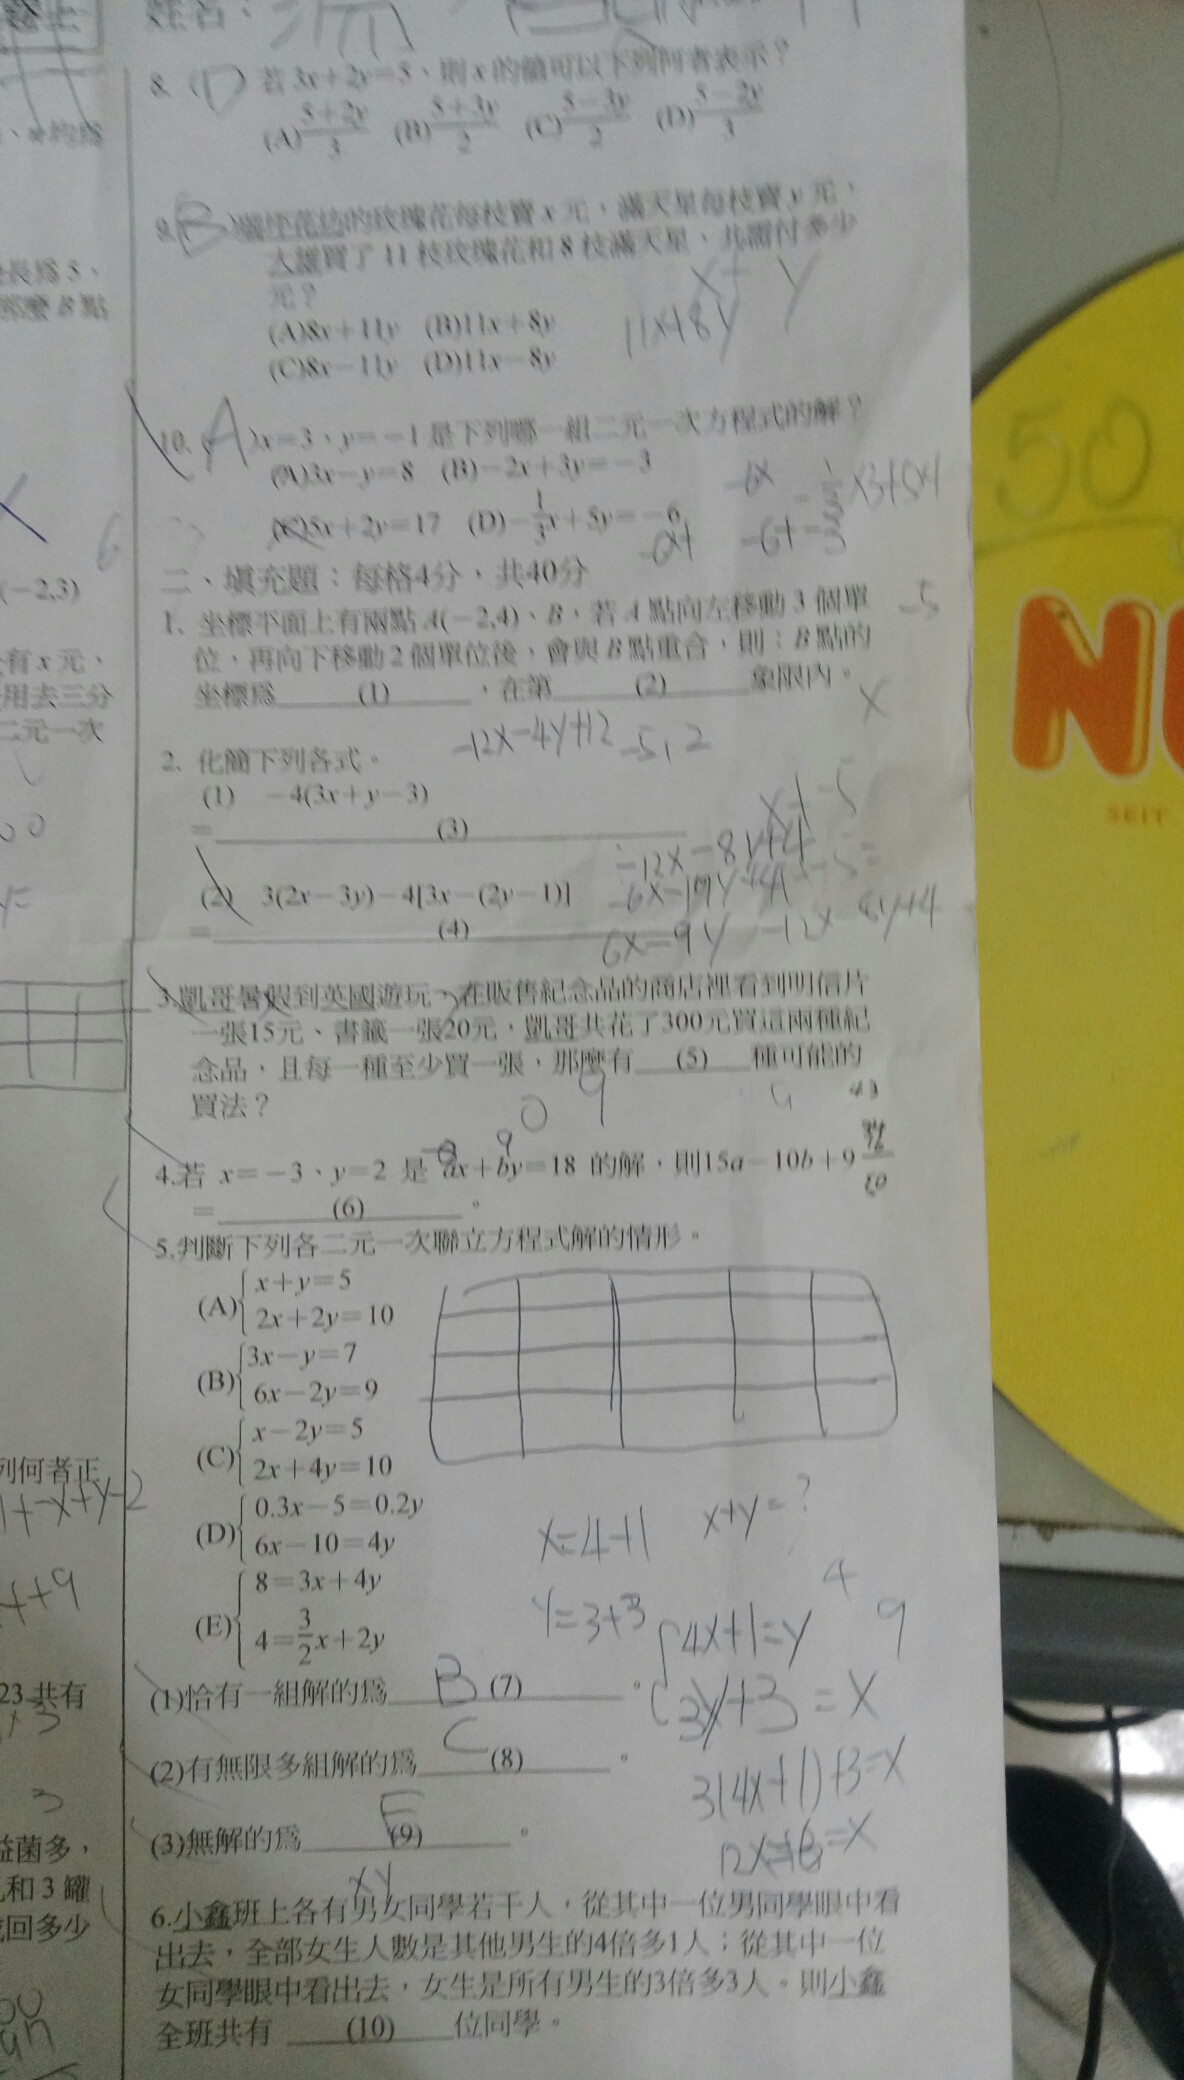 姓名：
8. (D) 若 3x+2y=5，則 x 的值可以下列何者表示？
(A) (5+2y)/3 (B) (5+3y)/2 (C) (5-3y)/2 (D) (5-2y)/3
9. (B)
花坊的玫瑰花每枝賣 x 元，滿天星每枝賣 y 元，
大雄買了 11 枝玫瑰花和 8 枝滿天星，共需付多少
元？
(A)8x+11y (B)11x+8y
(C)8x-11y (D)11x-8y
11x+8y
10. (A) x=3、y=-1 是下列哪一組二元一次方程式的解？
(A)3x-y=8 (B)-2x+3y=-3
(C)5x+2y=17 (D)-1/3x+5y=-6
二、填充題：每格4分，共40分
1. 坐標平面上有兩點 A(-2,4)、B，若 A 點向左移動 3 個單
位，再向下移動 2 個單位後，會與 B 點重合，則：B 點的
坐標為 (1) ，在第 (2) 象限內。
-12x-4y+12 -5,2
2. 化簡下列各式。
(1) -4(3x+y-3)
= (3)
(2) 3(2x-3y)-4[3x-(2y-1)]
= (4)
6x-9y -12x 8y+4
3.凱哥暑假到英國遊玩，在販售紀念品的商店裡看到明信片
一張15元、書籤一張20元，凱哥共花了300元買這兩種紀
念品，且每一種至少買一張，那麼有 (5) 種可能的
買法？
0 9
4.若 x=-3、y=2 是 ax+by=18 的解，則15a-10b+9
= (6) 。
5.判斷下列各二元一次聯立方程式解的情形。
(A) x+y=5
2x+2y=10
(B) 3x-y=7
6x-2y=9
(C) x-2y=5
2x+4y=10
(D) 0.3x-5=0.2y
6x-10=4y
(E) 8=3x+4y
4=3/2x+2y
x=4+1 x+y=?
y=3+3
4x+1=y
3y+3=x
3(4x+1)+3=x
(1)恰有一組解的為 B (7) 。
(2)有無限多組解的為 C (8) 。
(3)無解的為 E (9) 。
xy
6.小鑫班上各有男女同學若干人，從其中一位男同學眼中看
出去，全部女生人數是其他男生的4倍多1人；從其中一位
女同學眼中看出去，女生是所有男生的3倍多3人。則小鑫
全班共有 (10) 位同學。
長為 5、
那麼 B 點
(-2,3)
有 x 元，
用去三分
二元一次
列何者正
23 共有
益菌多，
和 3 罐
回多少
50
SEIT